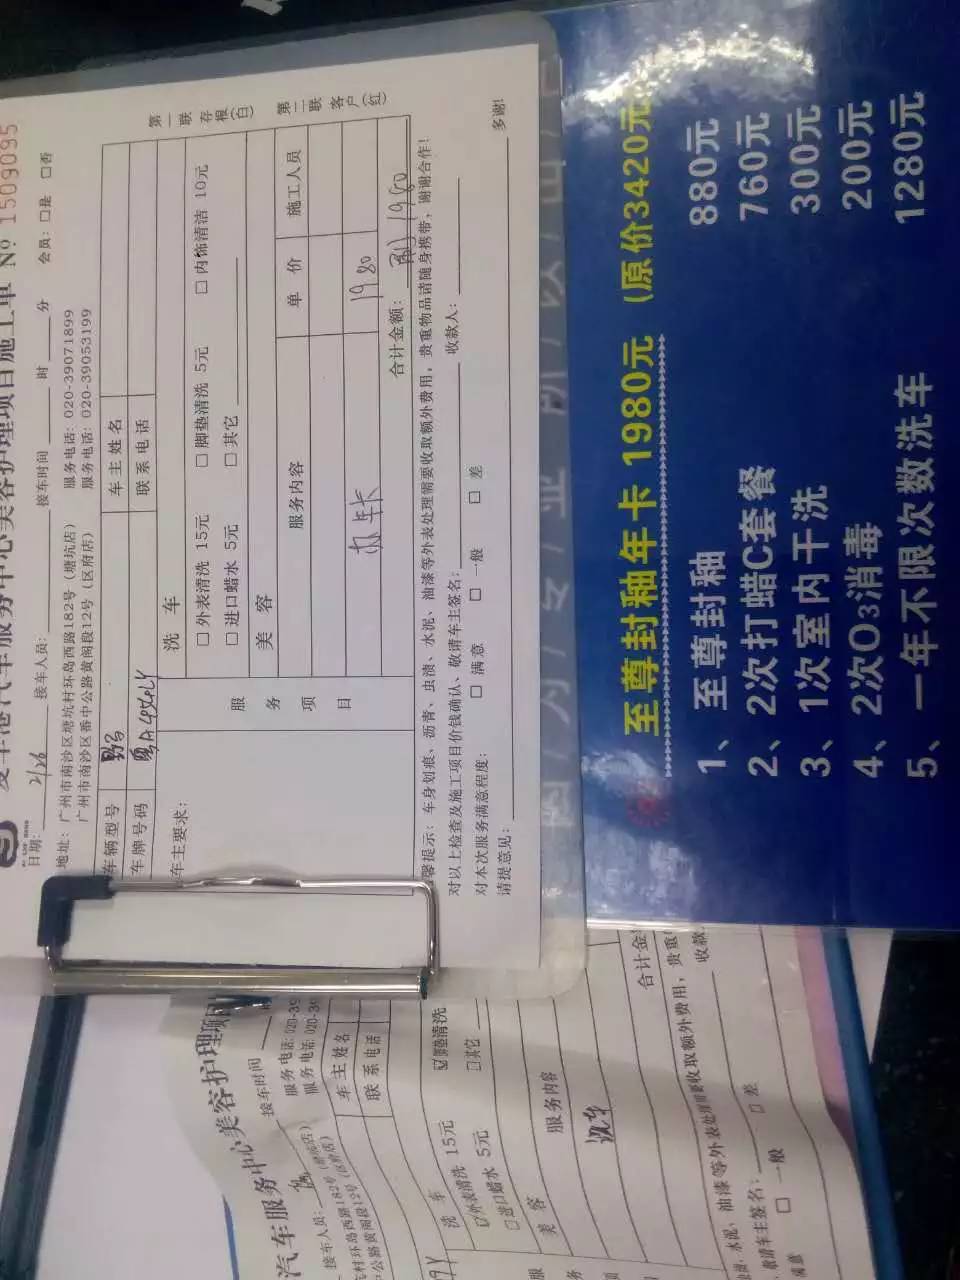 爱车港汽车服务中心美容护理项目施工单 Nº 1509095
日期: 2/26 接车人员: 接车时间 时 分 会员: □是 □否
地址: 广州市南沙区塘坑村环岛西路182号 (塘坑店) 服务电话: 020-39071899
广州市南沙区番中公路黄阁段12号 (区府店) 服务电话: 020-39053199
车辆型号 车主姓名
车牌号码 联系电话
车主要求:
服务项目
洗车
□ 外表清洗 15元 □ 脚垫清洗 5元 □ 内饰清洁 10元
□ 进口蜡水 5元 □ 其它
美容
服务内容 单价 施工人员
办年卡 1980
合计金额: 刷 1980
第一联 存根(白)
第二联 客户(红)
馨提示: 车身划痕、沥青、虫渍、水泥、油漆等外表处理需要收取额外费用, 贵重物品请随身携带, 谢谢合作!
对以上检查及施工项目价钱确认、敬请车主签名: 收款人:
对本次服务满意程度: □ 满意 □ 一般 □ 差
请提意见: 多谢!
至尊封釉年卡 1980元 (原价3420元
1、至尊封釉 880元
2、2次打蜡C套餐 760元
3、1次室内干洗 300元
4、2次O3消毒 200元
5、一年不限次数洗车 1280元
汽车服务中心美容护理项目
接车人员: 接车时间
村环岛西路182号 (塘坑店) 服务电话: 020-39
公路黄阁段12号 (区府店) 服务电话: 020-39
车主姓名
联系电话
洗车
外表清洗 15元 脚垫清洗
□进口蜡水 5元 □其它
美容
服务内容
洗车
合计金
水泥、油漆等外表处理需要收取额外费用, 贵重
敬请车主签名: 收款
满意 □ 一般 □ 差